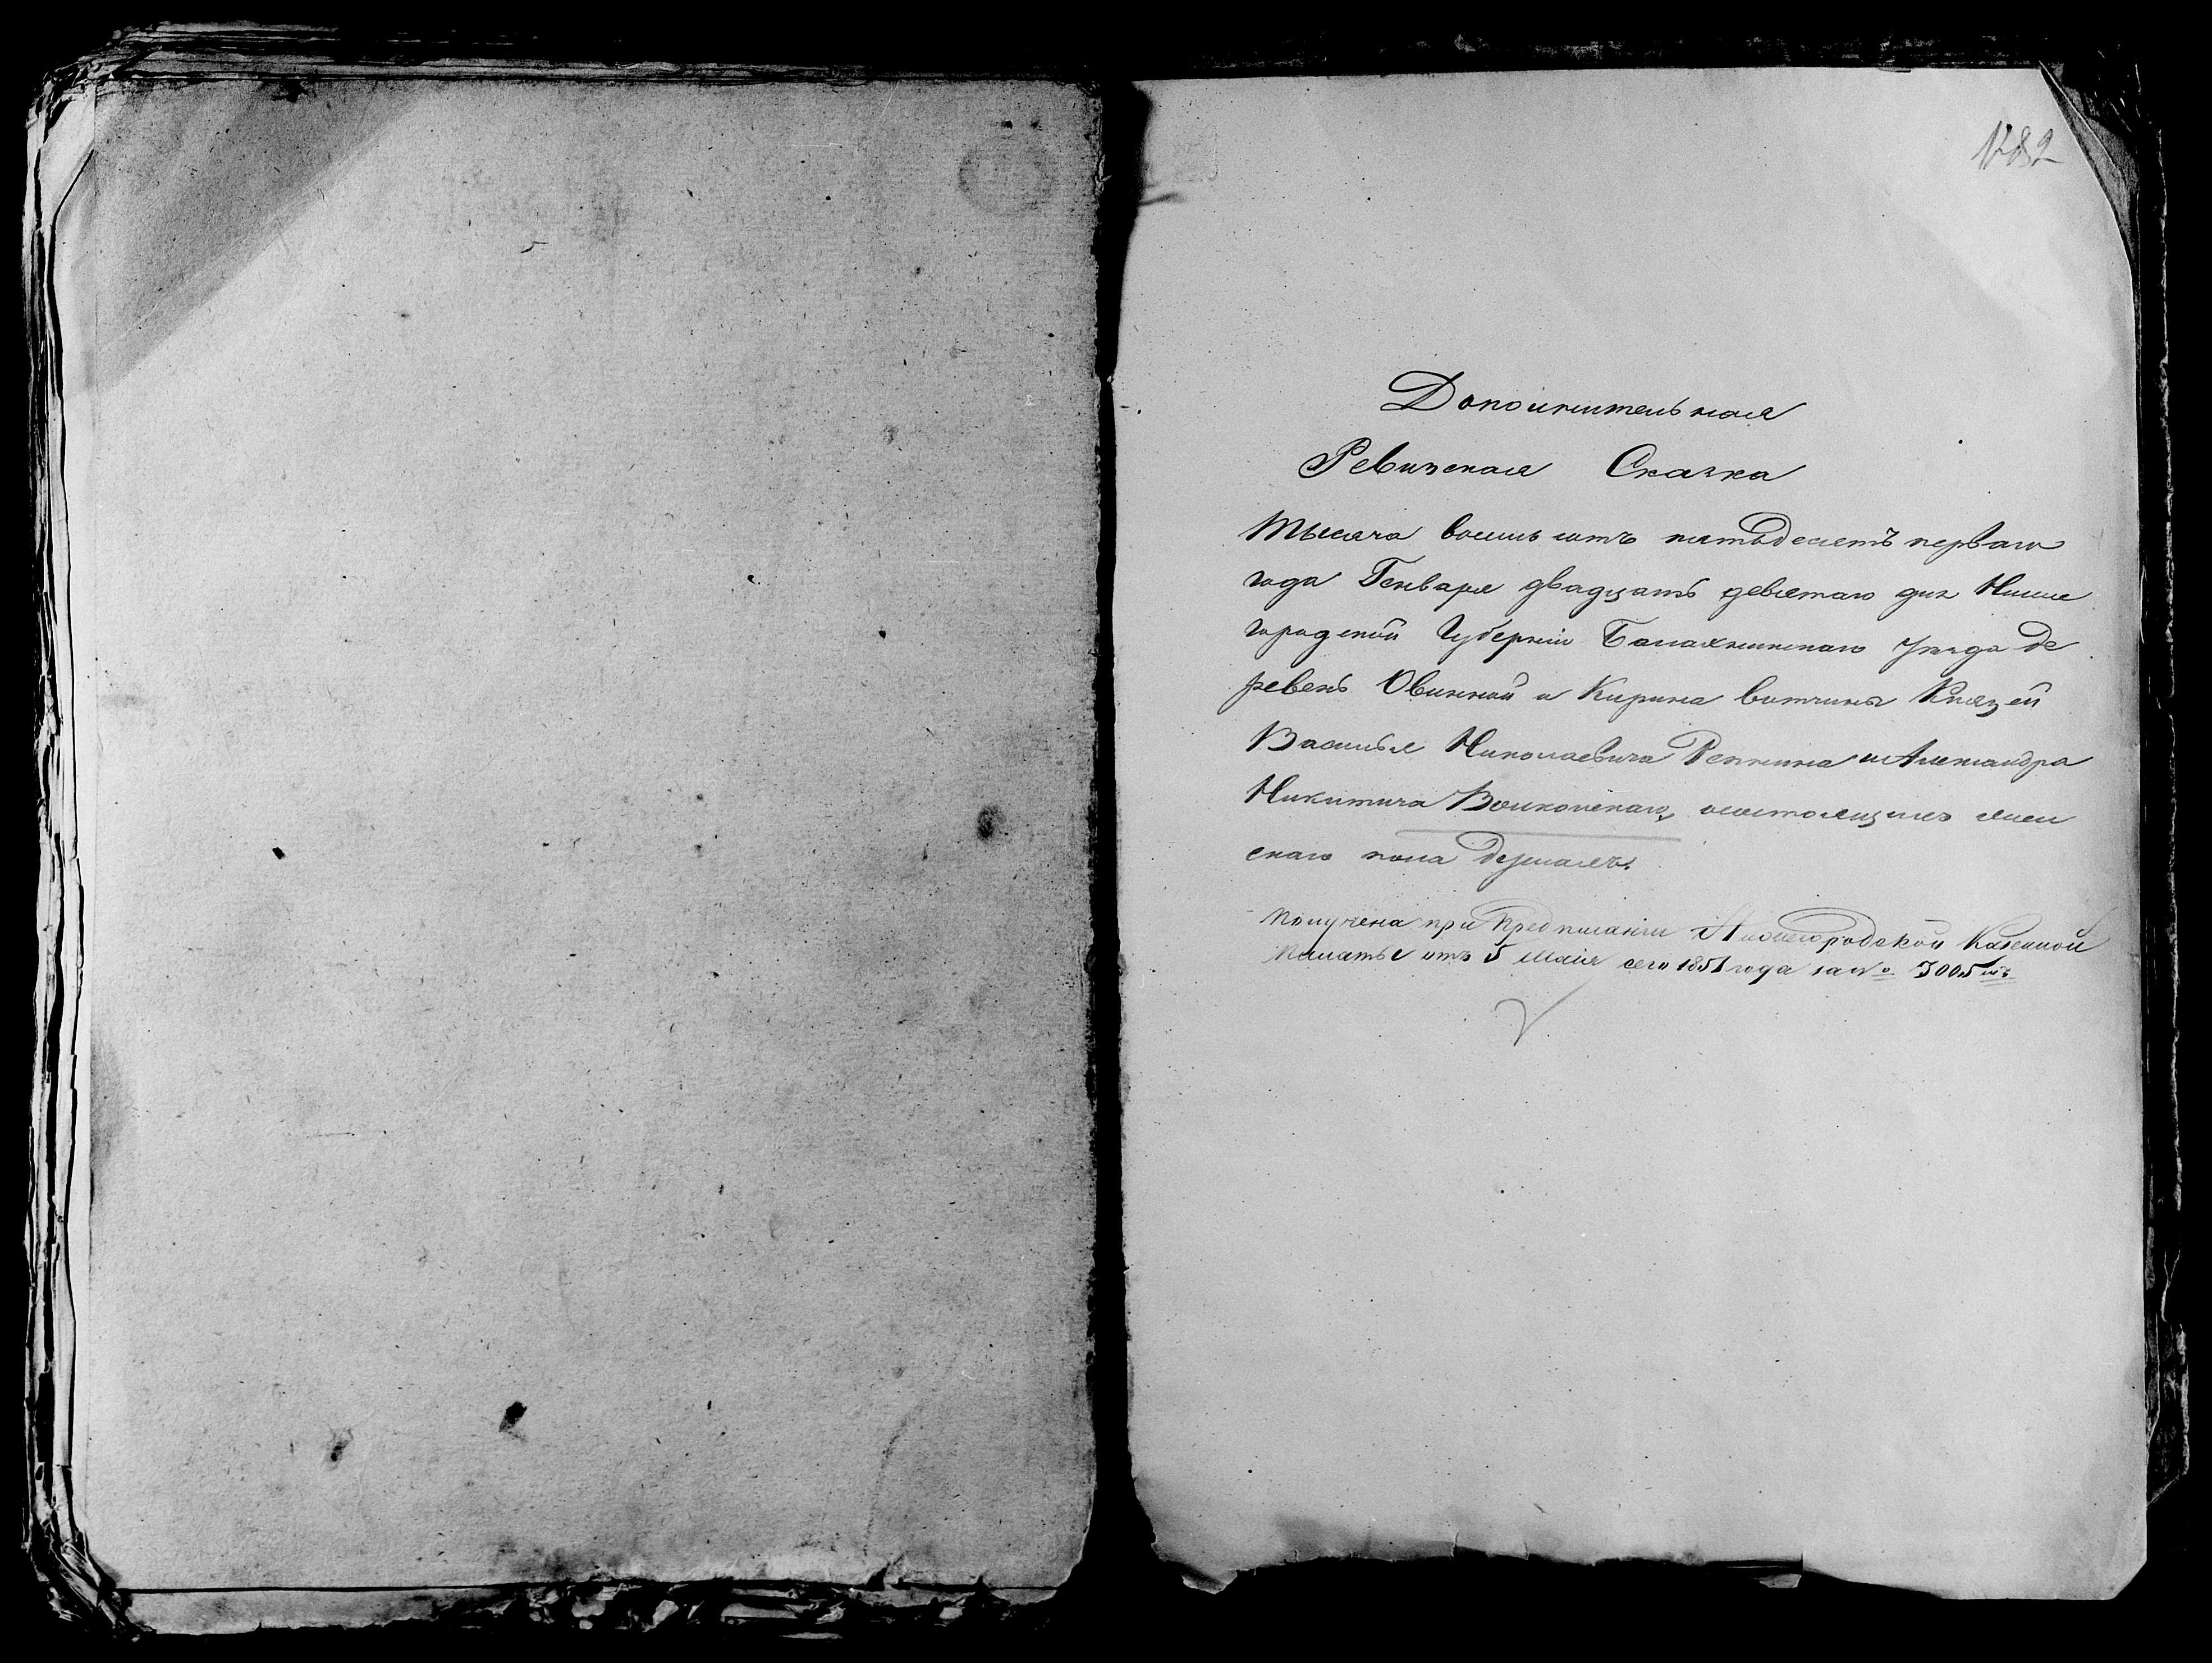 1282
Дополнительная
Ревизская Сказка
Тысяча восемь сотъ пятьдесятъ перваго
года Генваря двадцать девятаго дня Ниже
городской Губерніи Балахнинскаго Уѣзда де
ревень Овинной и Кирина вотчины Князей
Василья Николаевича Репнина и Александра
Никитича Волконскаго, о состоящихъ
скаго пола душахъ.
Получена при Предписаніи Нижегородской Казенной
Палаты отъ 5 Маія сего 1851 года за №